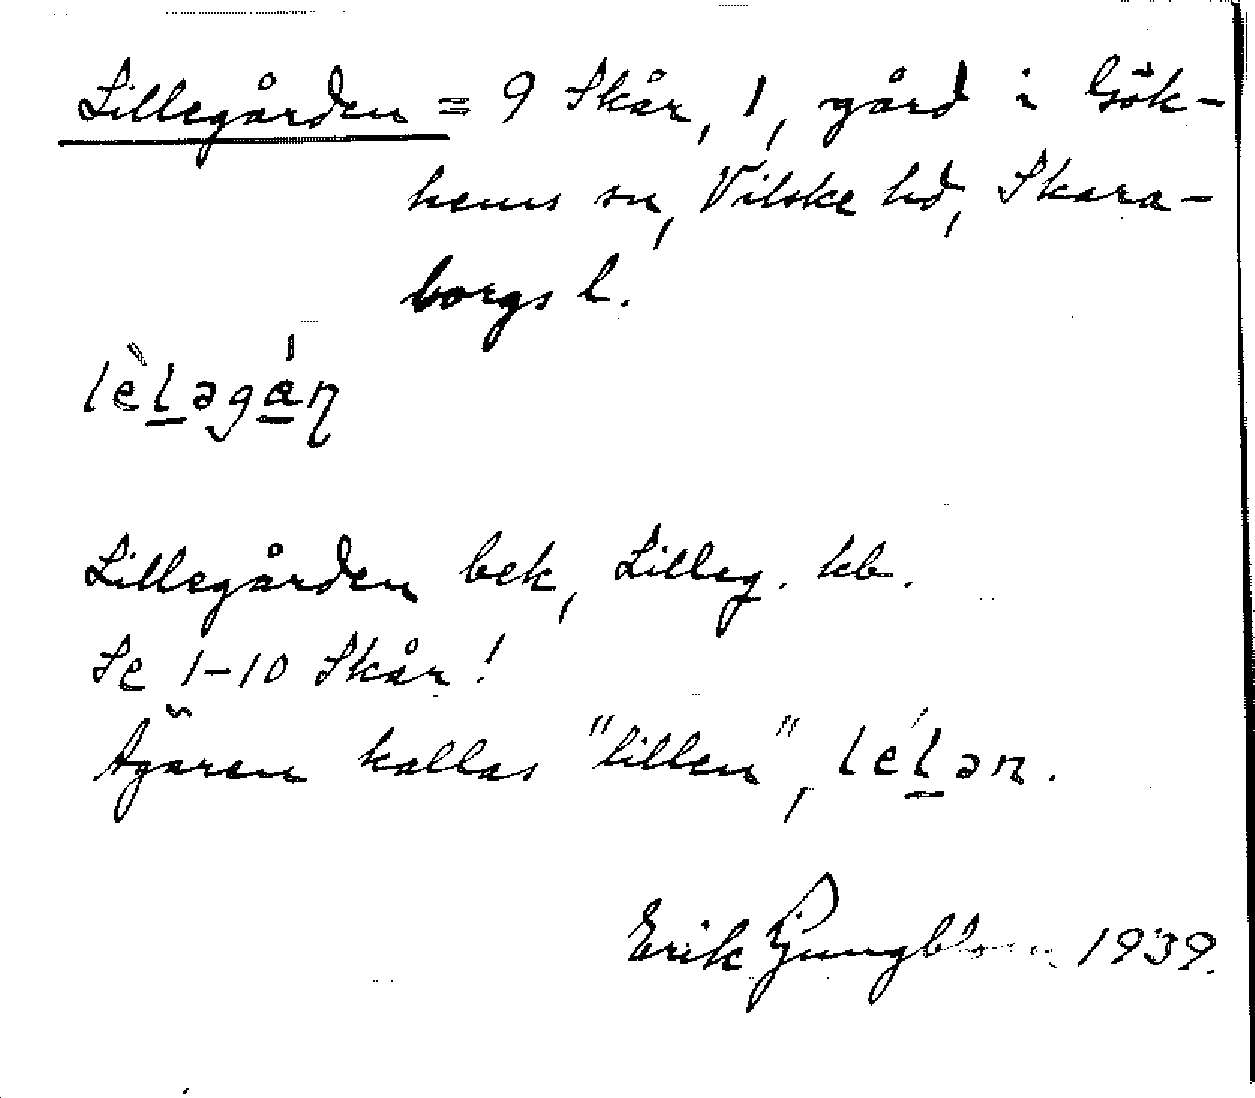 Lillegården = 9 Skår, 1, gård i Gök-
hems sn, Vilske hd, Skara-
borgs l.
lèlegán
Lillegården bek, Lilleg. kb.
Se 1-10 Skår!
Ägaren kallas "lillen", lélen.
Erik Ljungblom 1939.